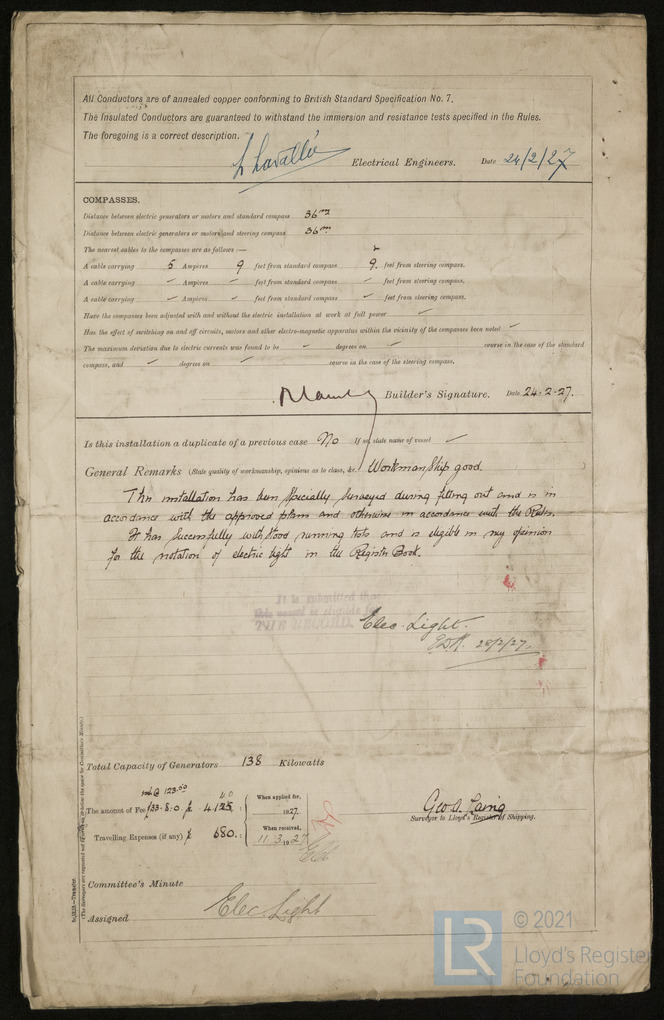 All Conductors are of annealed copper conforming to British Standard Specification No. 7.
The Insulated Conductors are guaranteed to withstand the immersion and resistance tests specified in the Rules.
The foregoing is a correct description.
Electrical Engineers. Date 24/2/27
COMPASSES.
Distance between electric generators or motors and standard compass 36
Distance between electric generators or motors and steering compass 36
The nearest cables to the compasses are as follows:—
A cable carrying 5 Ampères 9 feet from standard compass 9. feet from steering compass.
A cable carrying ✓ Ampères ✓ feet from standard compass ✓ feet from steering compass.
A cable carrying ✓ Ampères ✓ feet from standard compass ✓ feet from steering compass.
Have the compasses been adjusted with and without the electric installation at work at full power ✓
Has the effect of switching on and off circuits, motors and other electro-magnetic apparatus within the vicinity of the compasses been noted ✓
The maximum deviation due to electric currents was found to be ✓ degrees on ✓ course in the case of the standard
compass, and ✓ degrees on ✓ course in the case of the steering compass.
Builder's Signature. Date 24-2-27.
Is this installation a duplicate of a previous case No If so, state name of vessel ✓
General Remarks (State quality of workmanship, opinions as to class, &c.) Workmanship good.
This installation has been specially surveyed during fitting out and is in
accordance with the approved plans and otherwise in accordance with the Rules.
It has successfully withstood running tests and is eligible in my opinion
for the notation of electric light in the Register Book.
It is submitted that
this vessel is eligible for
THE RECORD.
Elec. Light.
28/2/27.
Total Capacity of Generators 138 Kilowatts
The amount of Fee
When applied for,
1927.
Travelling Expenses (if any) £ 680. :
When received,
11.3.1927
Geo. A. Laing
Surveyor to Lloyd's Register of Shipping.
Committee's Minute
Assigned Elec. Light
Transfer.
© 2021
LR
Lloyd's Register
Foundation